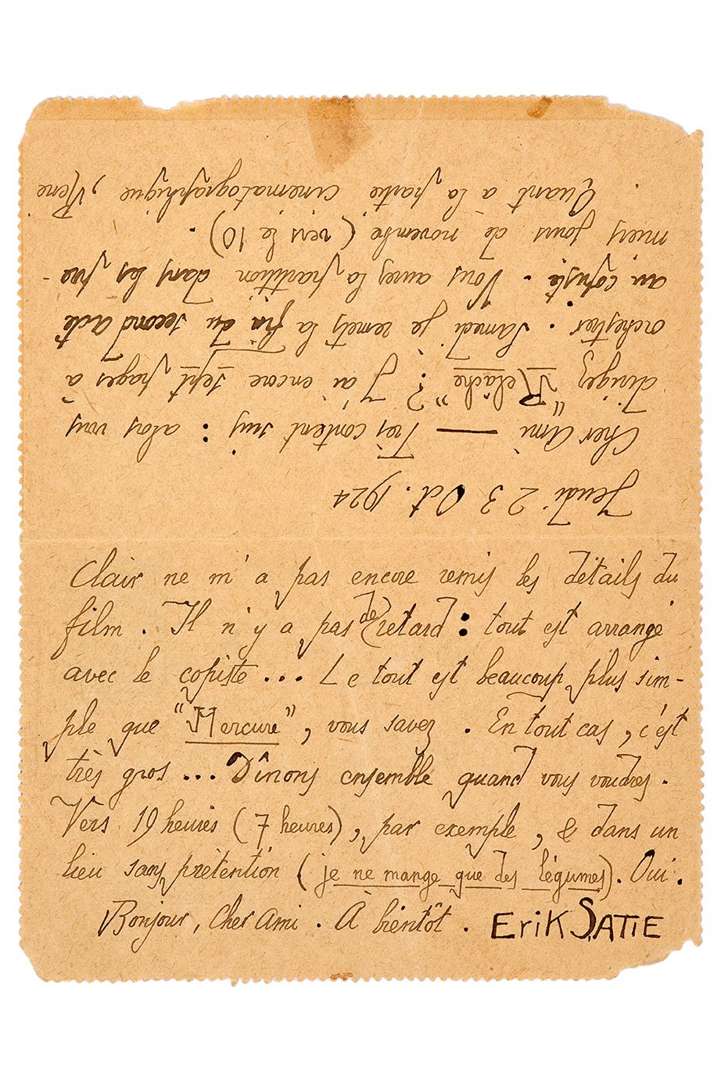 Jeudi 23 Oct. 1924
Cher Ami — Très content suis : alors vous
dirigez "Relâche" ? J'ai encore sept pages à
orchestrer . Samedi je remets la fin du second acte
au copiste . Vous aurez la partition dans les pre-
miers jours de novembre (vers le 10) .
Quant à la partie cinématographique , René
Clair ne m'a pas encore remis les détails du
film . Il n'y a pas de retard : tout est arrangé
avec le copiste ... Le tout est beaucoup plus sim-
ple que "Mercure" , vous savez . En tout cas , c'est
très gros ... Dînons ensemble quand vous voudrez .
Vers 19 heures (7 heures) , par exemple , & dans un
lieu sans prétention (je ne mange que des légumes) . Oui .
Bonjour , Cher Ami . À bientôt . Erik SATIE